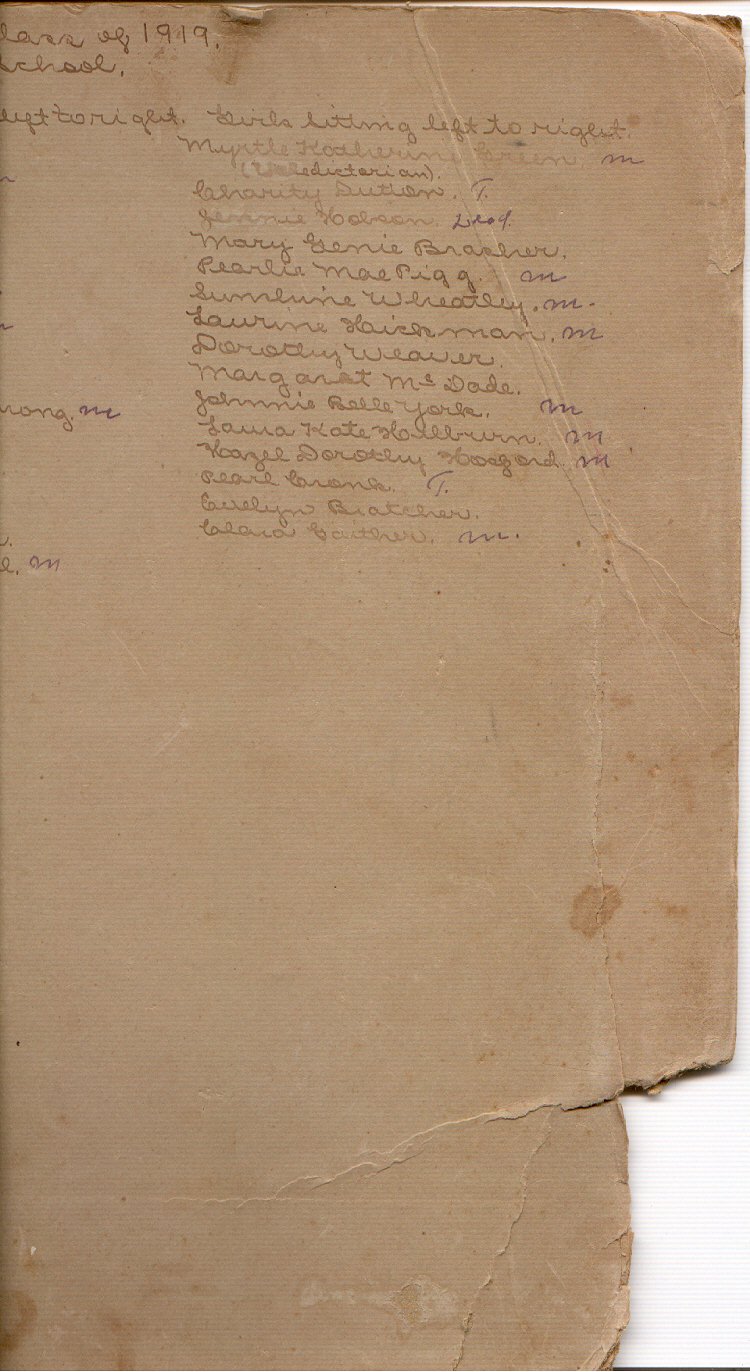 lass of 1919.
School.
left to right. Girls sitting left to right.
Myrtle Katherine Green m
(Valedictorian).
Charity Dutton. T.
Jennie Hobson. Dead.
Mary Genie Bratcher.
Pearlie Mae Pigg. m
Sunshine Wheatley. m.
Laurine Hickman. m
Dorothy Weaver.
Margaret Mc Dade.
rong. m Johnnie Belle York. m
Laura Kate Hilburn. m
Hazel Dorothy Hosford. m
Pearl Cronk. T.
Evelyn Bratcher.
Clara Gaither. m.
l. m